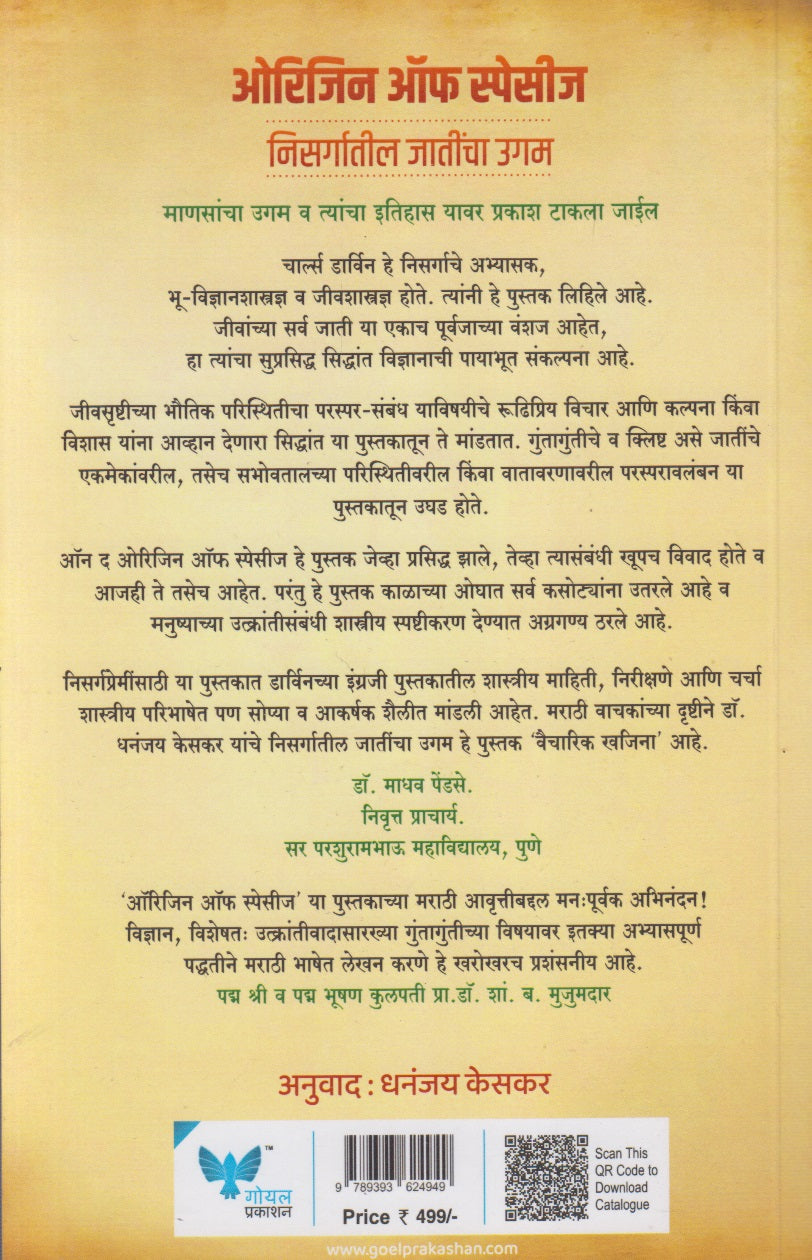 ओरिजिन ऑफ स्पेसीज
निसर्गातील जातींचा उगम
माणसांचा उगम व त्यांचा इतिहास यावर प्रकाश टाकला जाईल
चार्ल्स डार्विन हे निसर्गाचे अभ्यासक,
भू-विज्ञानशास्त्रज्ञ व जीवशास्त्रज्ञ होते. त्यांनी हे पुस्तक लिहिले आहे.
जीवांच्या सर्व जाती या एकाच पूर्वजाच्या वंशज आहेत,
हा त्यांचा सुप्रसिद्ध सिद्धांत विज्ञानाची पायाभूत संकल्पना आहे.
जीवसृष्टीच्या भौतिक परिस्थितीचा परस्पर-संबंध याविषयीचे रूढिप्रिय विचार आणि कल्पना किंवा
विशास यांना आव्हान देणारा सिद्धांत या पुस्तकातून ते मांडतात. गुंतागुंतीचे व क्लिष्ट असे जातींचे
एकमेकांवरील, तसेच सभोवतालच्या परिस्थितीवरील किंवा वातावरणावरील परस्परावलंबन या
पुस्तकातून उघड होते.
ऑन द ओरिजिन ऑफ स्पेसीज हे पुस्तक जेव्हा प्रसिद्ध झाले, तेव्हा त्यासंबंधी खूपच विवाद होते व
आजही ते तसेच आहेत. परंतु हे पुस्तक काळाच्या ओघात सर्व कसोट्यांना उतरले आहे व
मनुष्याच्या उत्क्रांतीसंबंधी शास्त्रीय स्पष्टीकरण देण्यात अग्रगण्य ठरले आहे.
निसर्गप्रेमींसाठी या पुस्तकात डार्विनच्या इंग्रजी पुस्तकातील शास्त्रीय माहिती, निरीक्षणे आणि चर्चा
शास्त्रीय परिभाषेत पण सोप्या व आकर्षक शैलीत मांडली आहेत. मराठी वाचकांच्या दृष्टीने डॉ.
धनंजय केसकर यांचे निसर्गातील जातींचा उगम हे पुस्तक ‘वैचारिक खजिना’ आहे.
डॉ. माधव पेंडसे.
निवृत्त प्राचार्य.
सर परशुरामभाऊ महाविद्यालय, पुणे
‘ऑरिजिन ऑफ स्पेसीज’ या पुस्तकाच्या मराठी आवृत्तीबद्दल मनःपूर्वक अभिनंदन!
विज्ञान, विशेषतः उत्क्रांतीवादासारख्या गुंतागुंतीच्या विषयावर इतक्या अभ्यासपूर्ण
पद्धतीने मराठी भाषेत लेखन करणे हे खरोखरच प्रशंसनीय आहे.
पद्म श्री व पद्म भूषण कुलपती प्रा.डॉ. शां. ब. मुजुमदार
अनुवाद : धनंजय केसकर
TM
गोयल
प्रकाशन
9 789393 624949
Price ₹ 499/-
Scan This
QR Code to
Download
Catalogue
www.goelprakashan.com